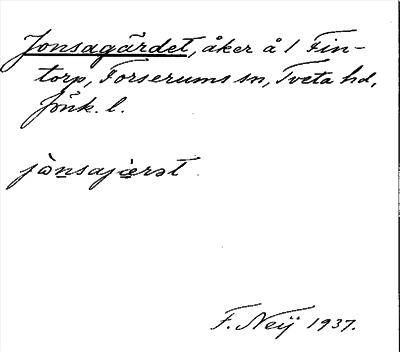 Jonsagärdet, åker å 1 Fin-
torp, Forserums sn, Tveta hd,
Jönk. l.
jònsajærət
F. Neij 1937.